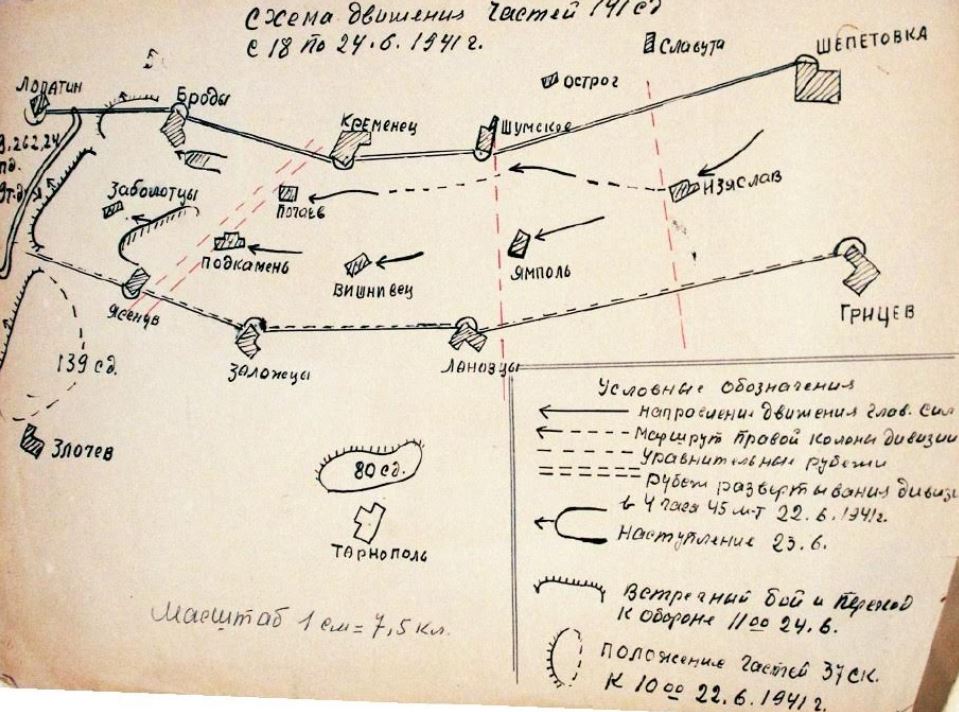 Схема движения частей 141 сд
с 18 по 24.6.1941г.
Славута
ШЕПЕТОВКА
Острог
Лопатин
Броды
Кременец
Шумское
Изяслав
Заболотцы
Почаев
Подкамень
Вишнивец
Ямполь
Ясенув
Заложецы
Лановцы
Грицев
139 сд.
Злочев
80 сд.
Тарнополь
Масштаб 1 см = 7,5 кл.
Условные обозначения
Направление движения глав. сил
Маршрут правой колоны дивизии
Уравнительные рубежи
Рубеж развертывания дивизи
в 4 часа 45 м-т 22.6.1941г.
Наступление 23.6.
Встречный бой и переход
к обороне 11 00 24.6.
Положение частей 37 ск.
к 10 00 22.6.1941г.